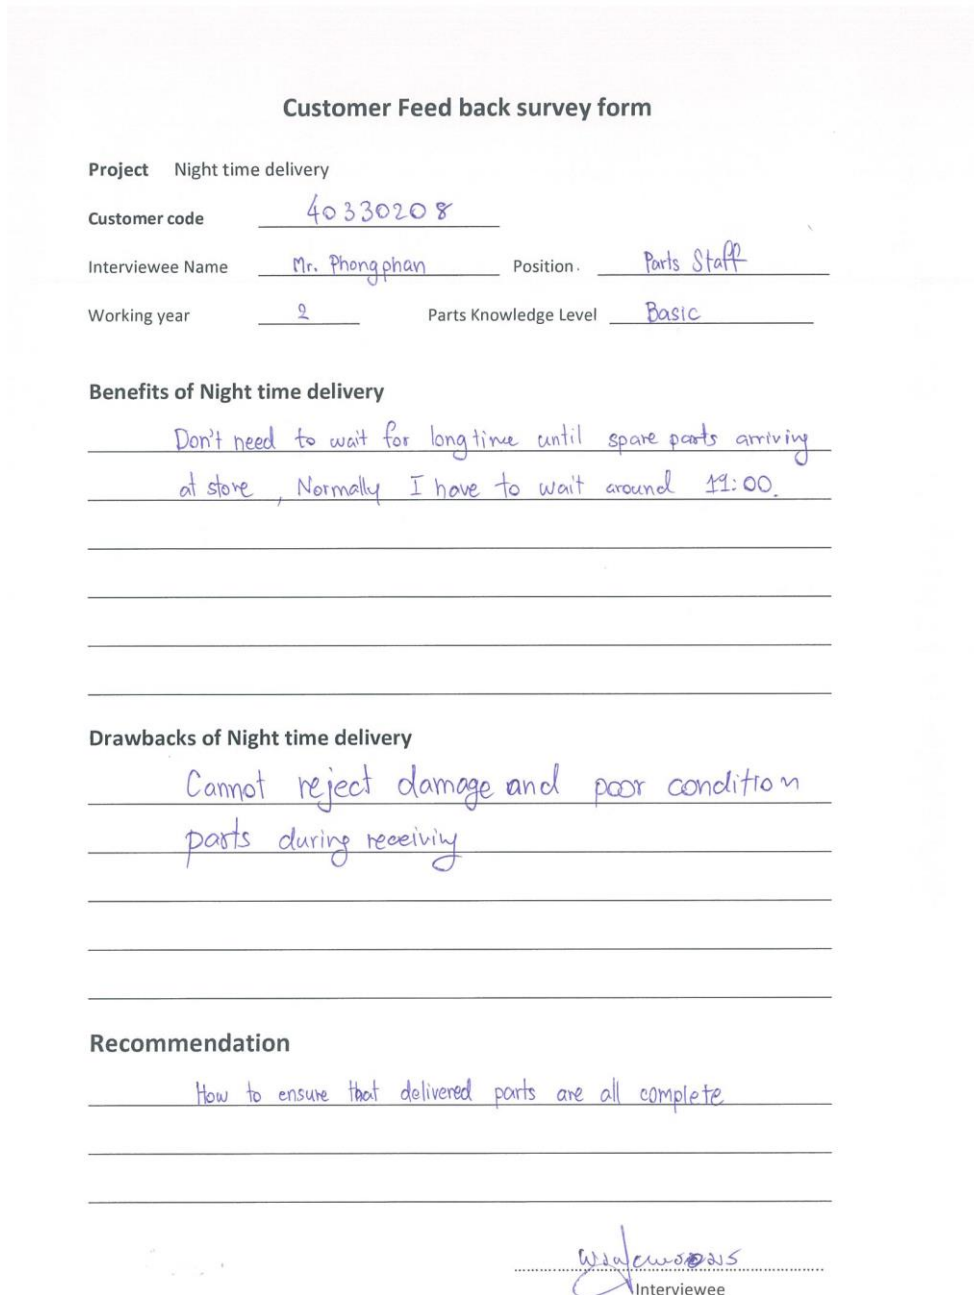 Customer Feed back survey form
Project Night time delivery
Customer code 40330208
Interviewee Name Mr. Phongphan Position. Parts Staff
Working year 2 Parts Knowledge Level Basic
Benefits of Night time delivery
Don't need to wait for long time until spare parts arriving
at store , Normally I have to wait around 11:00.
Drawbacks of Night time delivery
Cannot reject damage and poor condition
parts during receiving
Recommendation
How to ensure that delivered parts are all complete
Interviewee